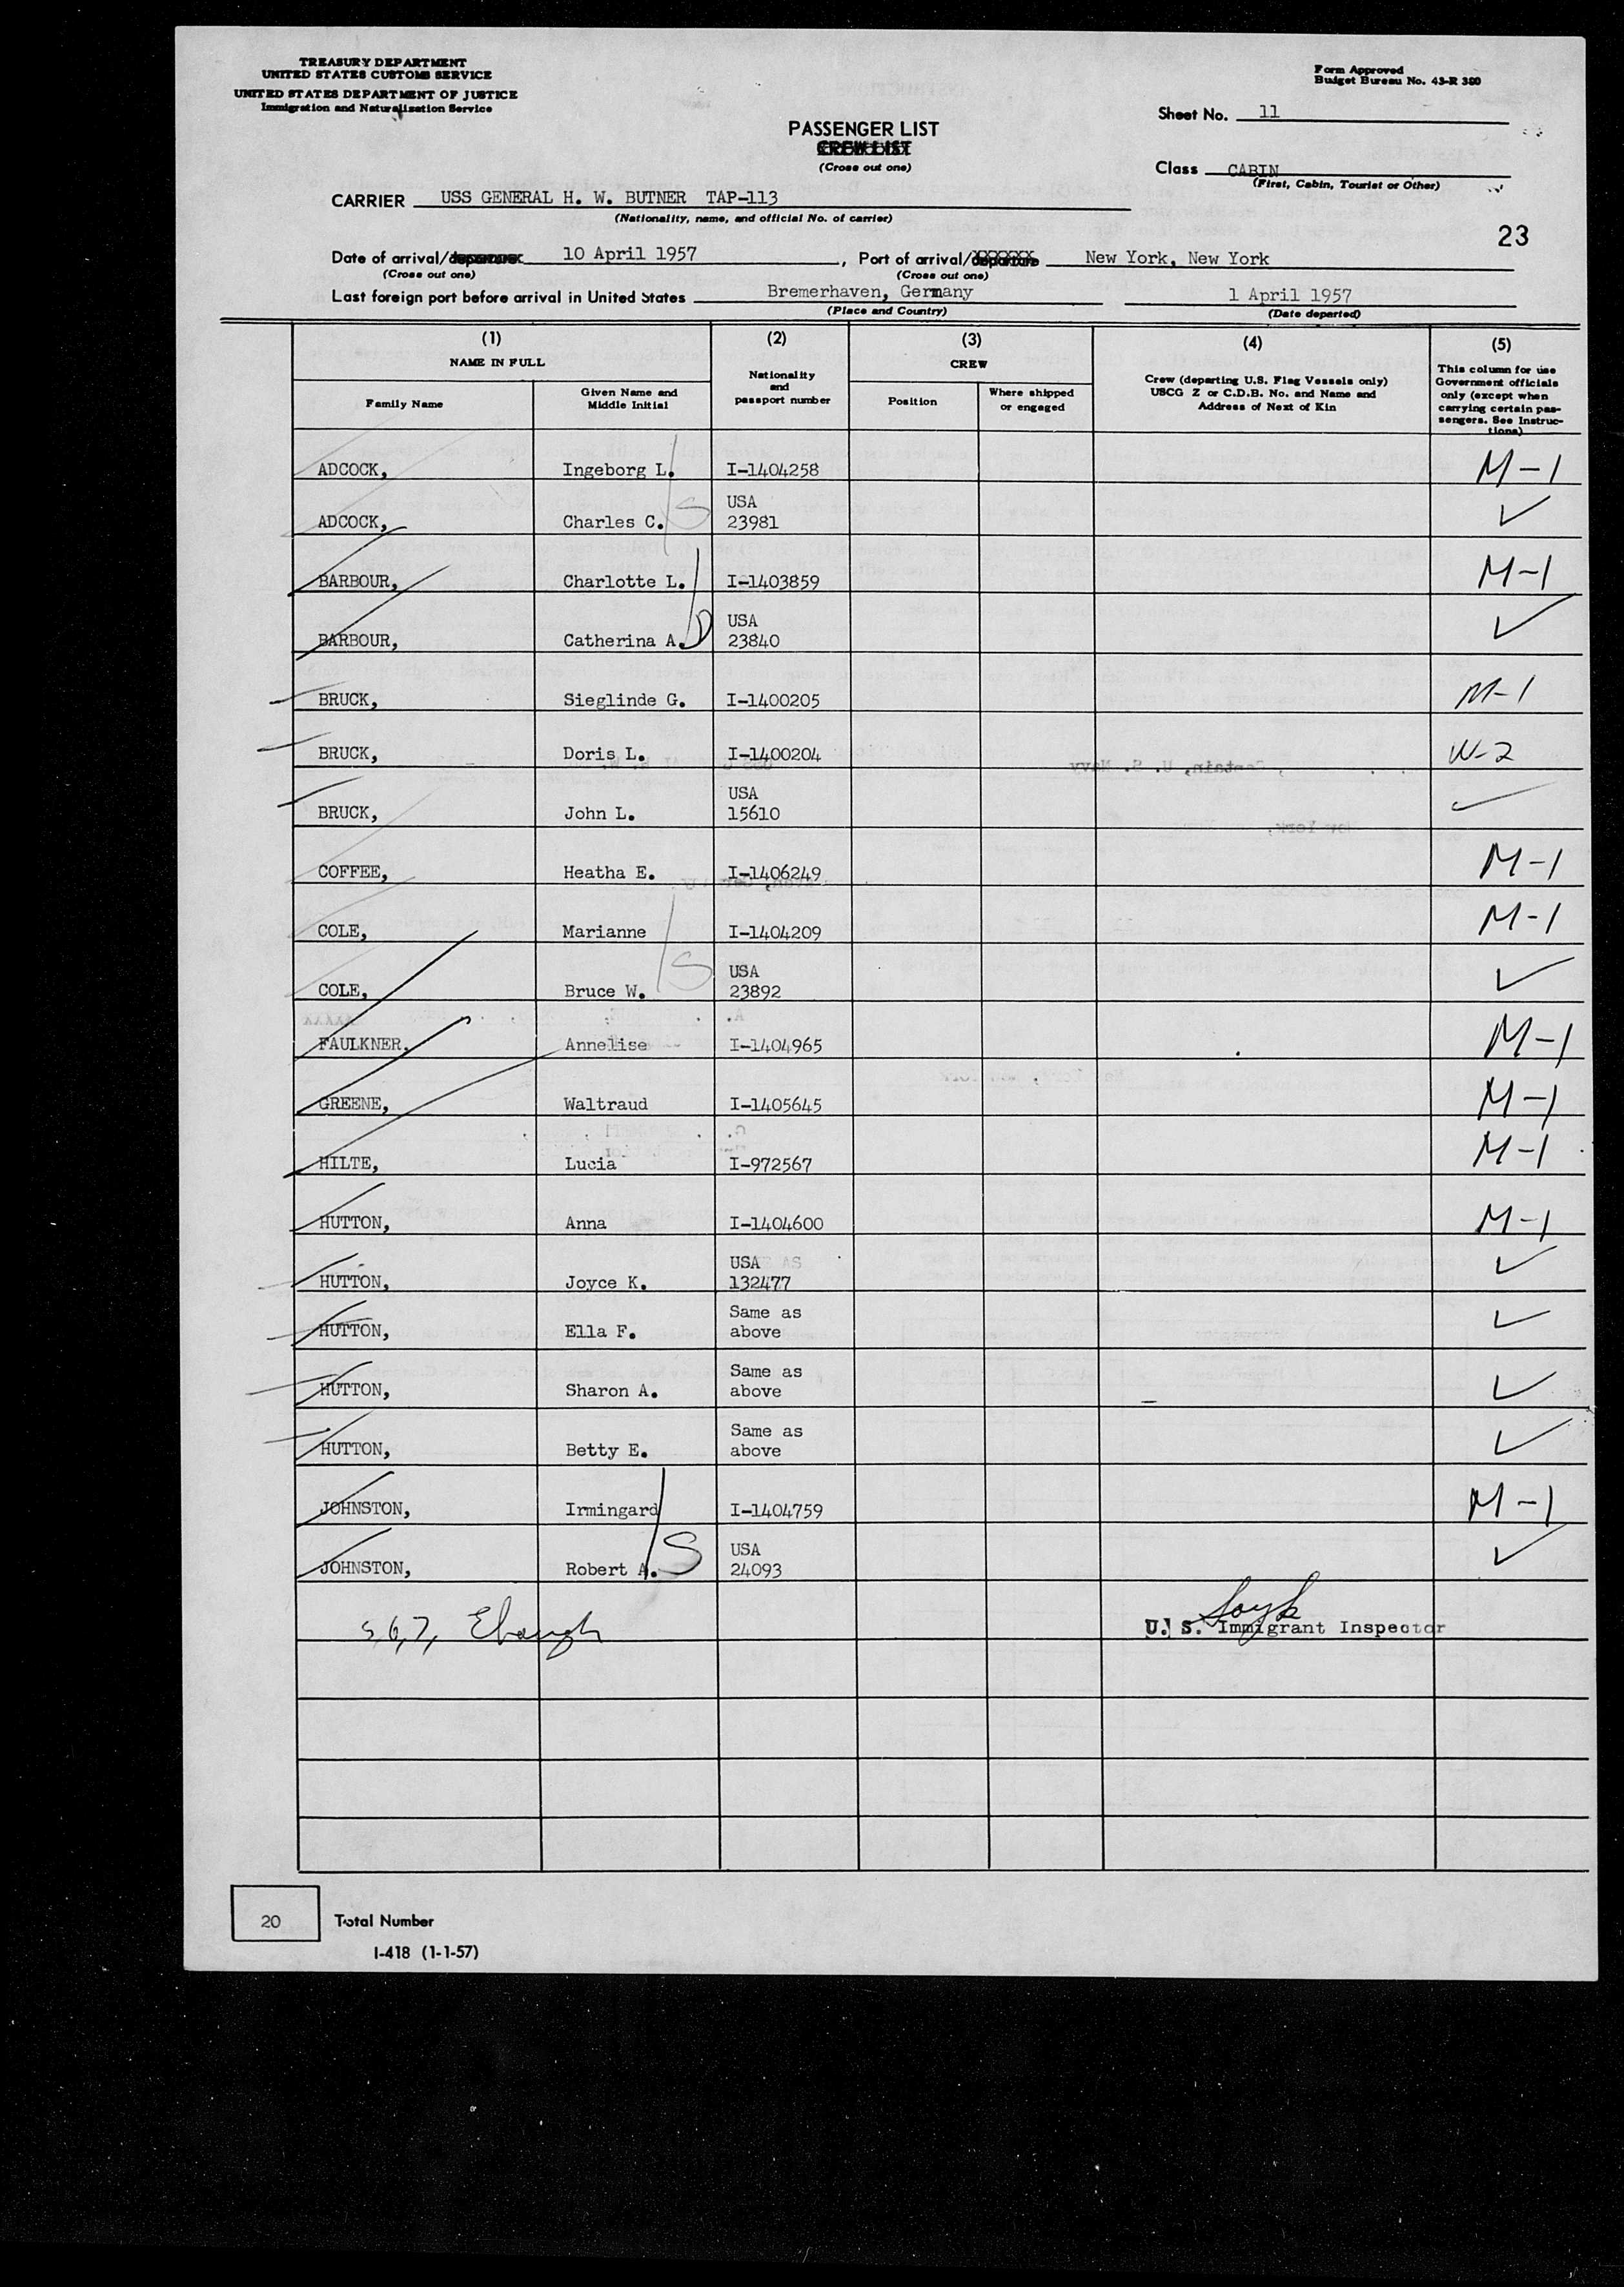 TREASURY DEPARTMENT
UNITED STATES CUSTOMS SERVICE
UNITED STATES DEPARTMENT OF JUSTICE
Immigration and Naturalization Service
Form Approved
Budget Bureau No. 43-R 380
Sheet No. 11
PASSENGER LIST
CREW LIST
(Cross out one)
Class CABIN
(First, Cabin, Tourist or Other)
CARRIER USS GENERAL H. W. BUTNER TAP-113
(Nationality, name, and official No. of carrier)
23
Date of arrival/departure 10 April 1957, Port of arrival/departure New York, New York
(Cross out one) (Cross out one)
Last foreign port before arrival in United States Bremerhaven, Germany 1 April 1957
(Place and Country) (Date departed)
(1) (2) (3) (4) (5)
NAME IN FULL
Family Name
Given Name and
Middle Initial
Nationality
and
passport number
CREW
Position
Where shipped
or engaged
Crew (departing U.S. Flag Vessels only)
USCG Z or C.D.B. No. and Name and
Address of Next of Kin
This column for use
Government officials
only (except when
carrying certain pas-
sengers. See Instruc-
tions)
ADCOCK, Ingeborg L. I-1404258 M-1
USA
ADCOCK, Charles C. 23981 ✓
S
BARBOUR, Charlotte L. I-1403859 M-1
USA
BARBOUR, Catherina A. 23840 ✓
D
BRUCK, Sieglinde G. I-1400205 M-1
BRUCK, Doris L. I-1400204 W-2
USA
BRUCK, John L. 15610 ✓
COFFEE, Heatha E. I-1406249 M-1
COLE, Marianne I-1404209 M-1
USA
COLE, Bruce W. 23892 ✓
S
FAULKNER, Annelise I-1404965 M-1
GREENE, Waltraud I-1405645 M-1
HILTE, Lucia I-972567 M-1
HUTTON, Anna I-1404600 M-1
USA
HUTTON, Joyce K. 132477 ✓
Same as
HUTTON, Ella F. above ✓
Same as
HUTTON, Sharon A. above ✓
Same as
HUTTON, Betty E. above ✓
JOHNSTON, Irmingard I-1404759 M-1
USA
JOHNSTON, Robert A. 24093 ✓
S
5,6,7,
U. S. Immigrant Inspector
20 Total Number
I-418 (1-1-57)